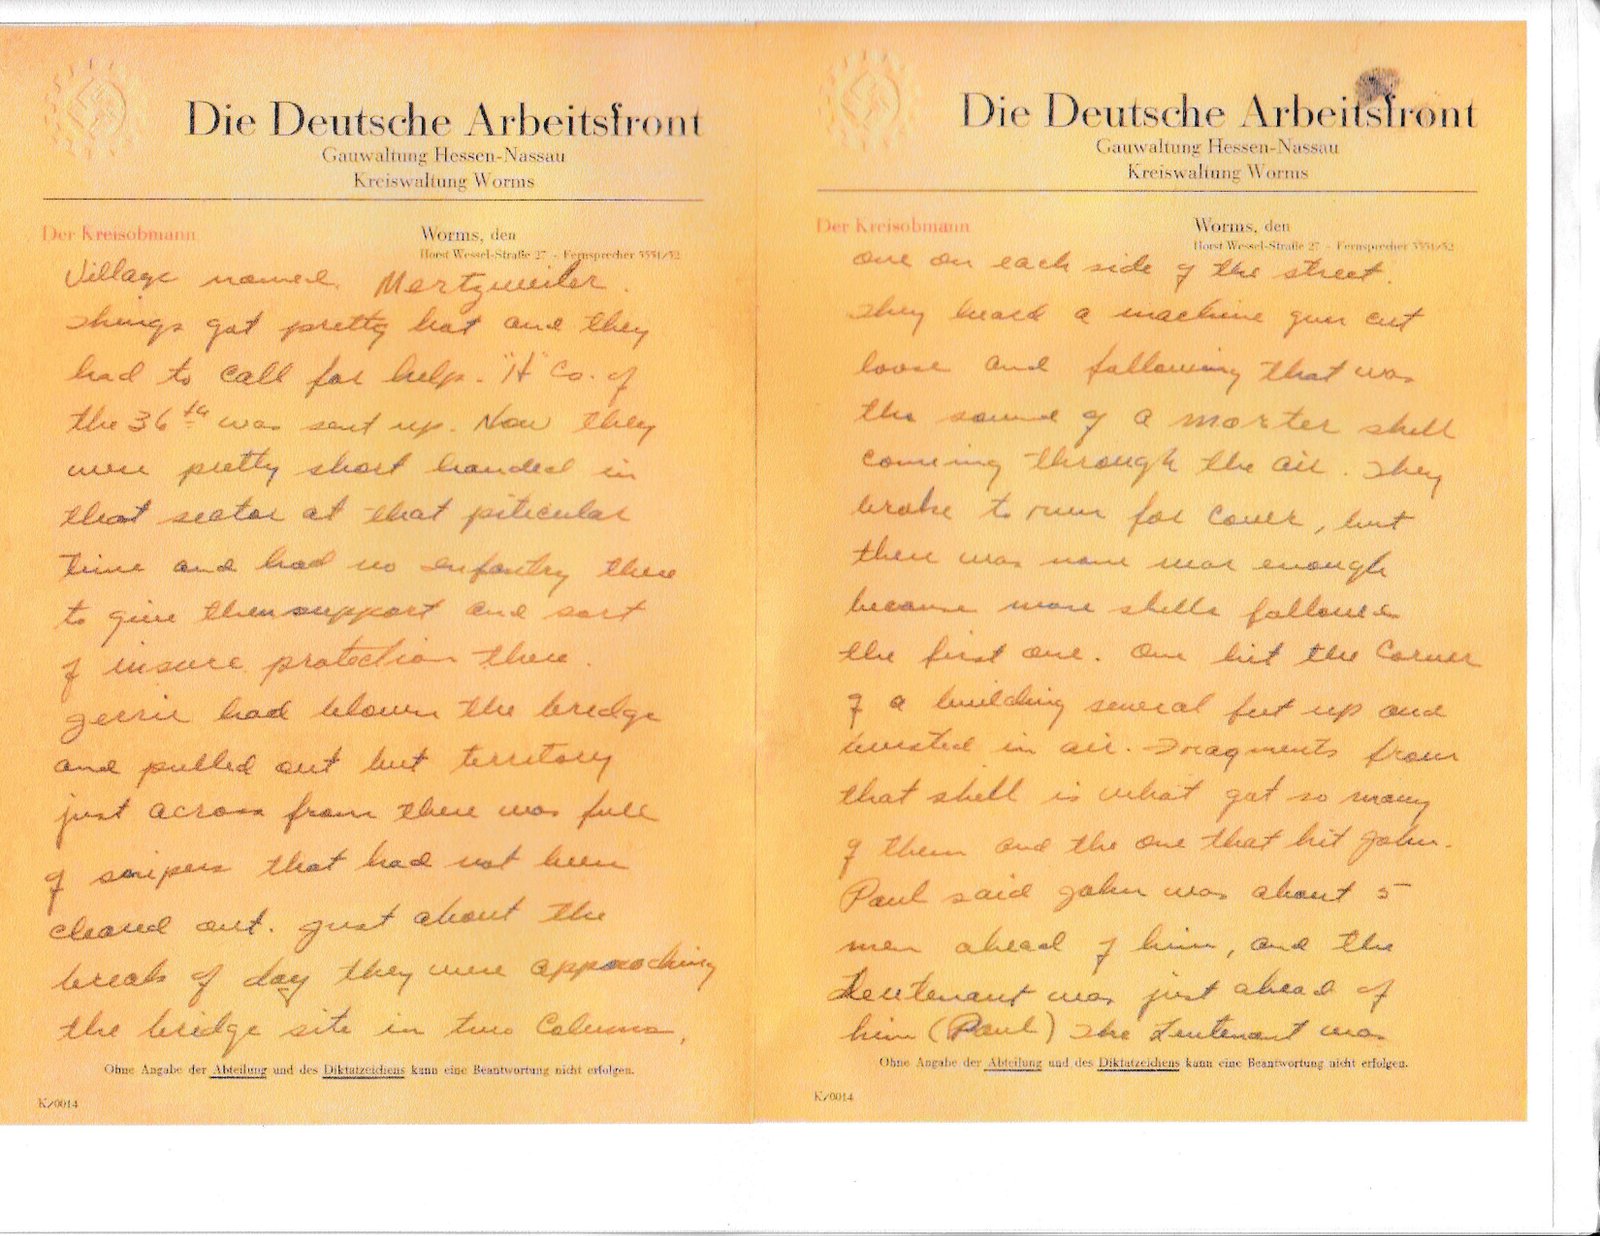 Die Deutsche Arbeitsfront
Gauwaltung Hessen-Nassau
Kreiswaltung Worms
Der Kreisobmann
Worms, den
Horst Wessel-Straße 27 - Fernsprecher 5551/52
Village named Mertzweiler.
Things got pretty hot and they
had to call for help. "H" Co. of
the 36th was sent up. Now they
were pretty short handed in
that sector at that piticular
time and had no infantry there
to give them support and sort
of insure protection there.
Jerrie had blown the bredge
and pulled out but territory
just across from there was full
of snipers that had not been
cleared out. Just about the
break of day they were approaching
the bridge site in two Columns,
Ohne Angabe der Abteilung und des Diktatzeichens kann eine Beantwortung nicht erfolgen.
K/0014
Die Deutsche Arbeitsfront
Gauwaltung Hessen-Nassau
Kreiswaltung Worms
Der Kreisobmann
Worms, den
Horst Wessel-Straße 27 - Fernsprecher 5551/52
one on each side of the street.
They heard a machine gun cut
loose and following that was
the sound of a morter shell
comeing through the air. They
broke to run for cover, but
there was none near enough
because more shells followed
the first one. One hit the Corner
of a building several feet up and
bursted in air. Fragments from
that shell is what got so many
of them and the one that hit John.
Paul said John was about 5
men ahead of him, and the
Leutenant was just ahead of
him (Paul) The Leutenant was
Ohne Angabe der Abteilung und des Diktatzeichens kann eine Beantwortung nicht erfolgen.
K/0014